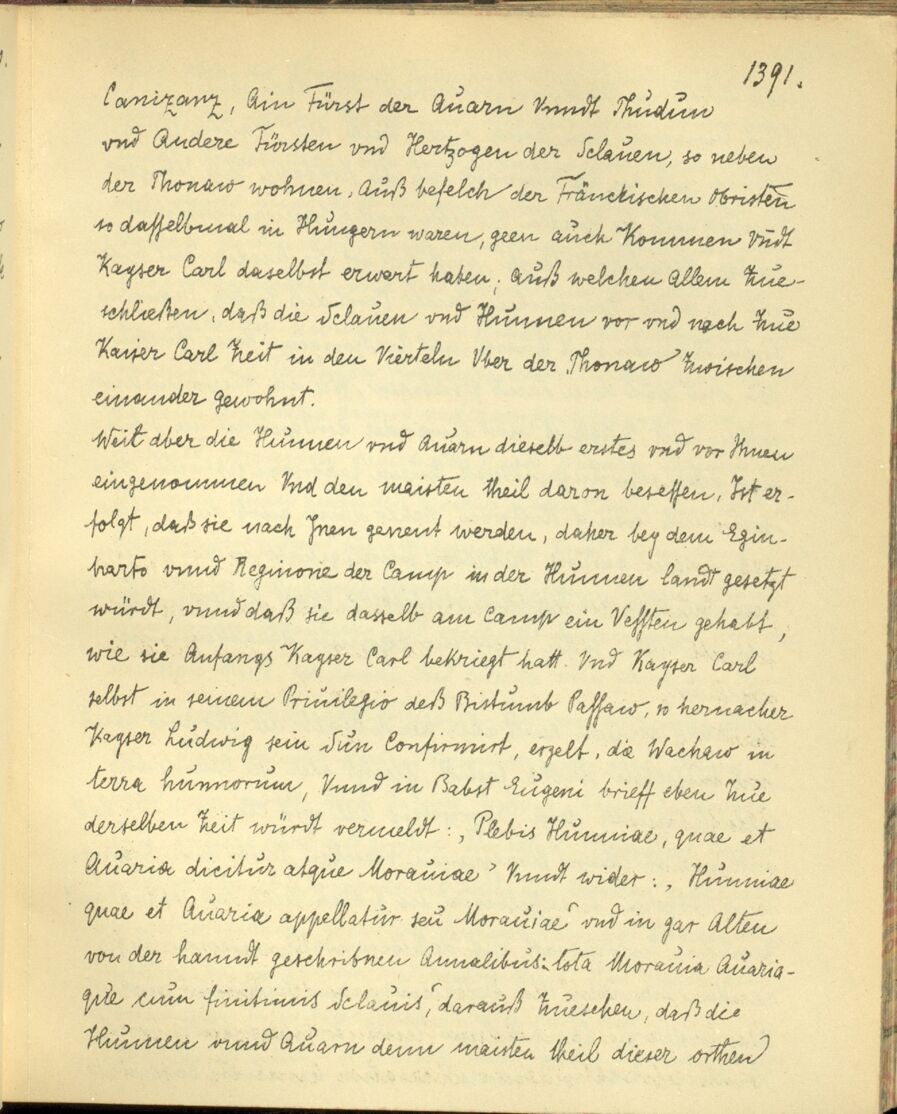 1391.
Canizanz, Ain Fürst der Auarn Vnndt Thudun
vnd Andere Fürsten vnd Hertzogen der Sclauen, so neben
der Thonaw wohnen, Auß befelch der Fränckischen Obristen
so dasselbmal in Hungern waren, geen auch Kommen Vndt
Kayser Carl daselbst erwart haben; auß welchen Allem Zue-
schließen, daß die Sclauen vnd Hunnen vor vnd nach Zue
Kaiser Carl Zeit in den Vierteln Vber der Thonaw Zwischen
einander gewohnt.
Weil aber die Hunnen vnd Auarn dieselb erstes vnd vor Ihnen
eingenommen Vnd den maisten theil daron besessen, Ist er-
folgt, daß sie nach Jnen genent werden, daher bey dem Egin-
harto vnnd Reginone der Camp in der Hunnen landt gesetzt
würdt, vnnd daß sie dasselb am Camp ein Vessten gehabt,
wie sie Anfangs Kayser Carl bekriegt hatt. Vnd Kayser Carl
selbst in seinem Priuilegio deß Bistumb Passaw, so hernacher
Kayser Ludwig sein Sun Confirmirt, erzelt, die Wachaw in
terra hunnorum, Vnnd in Babst Eugeni brieff eben Zue
derselben Zeit würdt vermeldt: „Plebis Hunniae, quae et
Auaria dicitur atque Morauiae“ Vnndt wider: „Hunniae
quae et Auaria appellatur seu Morauiae“ vnd in gar Alten
von der hanndt geschribnen Annalibus: tota Morauia Auaria-
que cum finitimis Sclauis“, darauß Zuesehen, daß die
Hunnen vnnd Auarn denn maisten theil dieser orthen